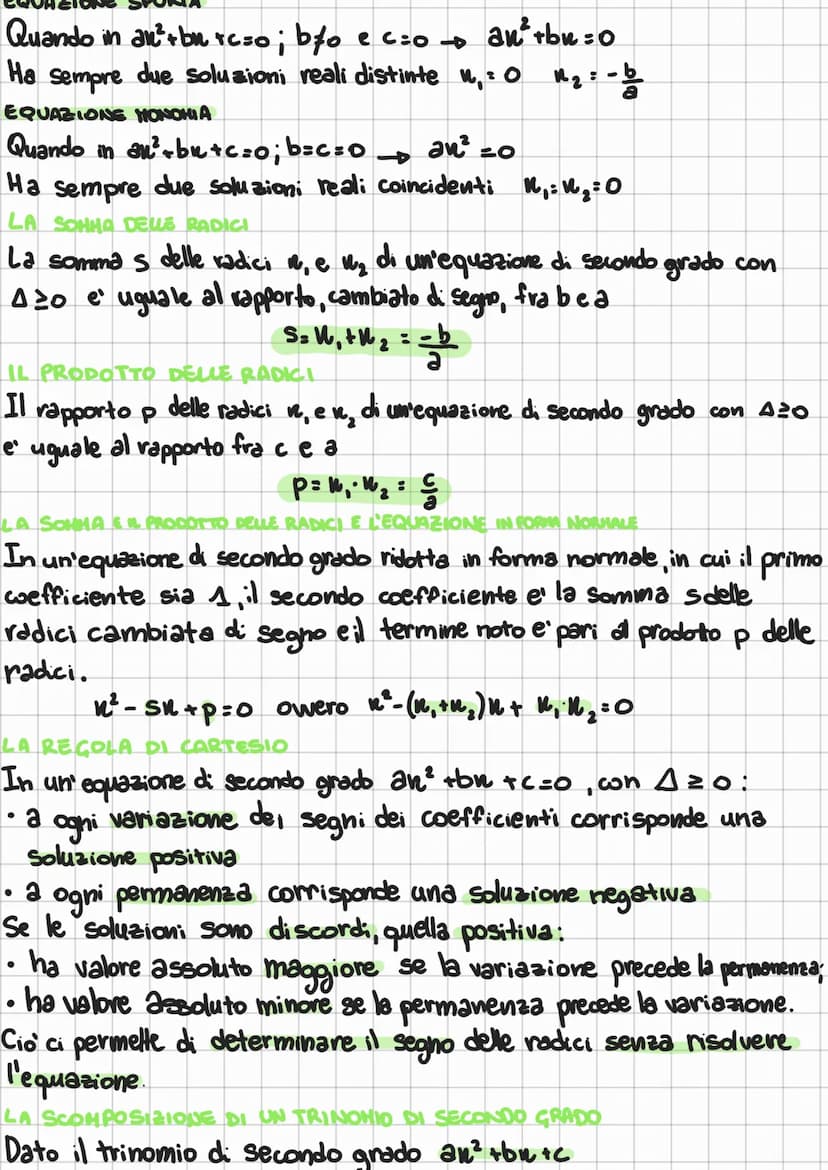 EQUAZIONE SPURIA
Quando in ax²+bx+c=0; b≠0 e c=0 → ax²+bx=0
Ha sempre due soluzioni reali distinte x₁=0 x₂=-b/a
EQUAZIONE MONOMIA
Quando in ax²+bx+c=0; b=c=0 → ax²=0
Ha sempre due soluzioni reali coincidenti x₁=x₂=0
LA SOMMA DELLE RADICI
La somma s delle radici x₁ e x₂ di un'equazione di secondo grado con
Δ≥0 e' uguale al rapporto, cambiato di segno, fra b e a
s=x₁+x₂=-b/a
IL PRODOTTO DELLE RADICI
Il rapporto p delle radici x₁ e x₂ di un'equazione di secondo grado con Δ≥0
e' uguale al rapporto fra c e a
p=x₁·x₂=c/a
LA SOMMA E IL PRODOTTO DELLE RADICI E L'EQUAZIONE IN FORMA NORMALE
In un'equazione di secondo grado ridotta in forma normale, in cui il primo
coefficiente sia 1, il secondo coefficiente e' la somma s delle
radici cambiata di segno e il termine noto e' pari al prodotto p delle
radici.
x²-sx+p=0 ovvero x²-(x₁+x₂)x+x₁·x₂=0
LA REGOLA DI CARTESIO
In un'equazione di secondo grado ax²+bx+c=0, con Δ≥0:
• a ogni variazione dei segni dei coefficienti corrisponde una
soluzione positiva
• a ogni permanenza corrisponde una soluzione negativa
Se le soluzioni sono discordi, quella positiva:
• ha valore assoluto maggiore se la variazione precede la permanenza;
• ha valore assoluto minore se la permanenza precede la variazione.
Cio' ci permette di determinare il segno delle radici senza risolvere
l'equazione.
LA SCOMPOSIZIONE DI UN TRINOMIO DI SECONDO GRADO
Dato il trinomio di secondo grado ax²+bx+c